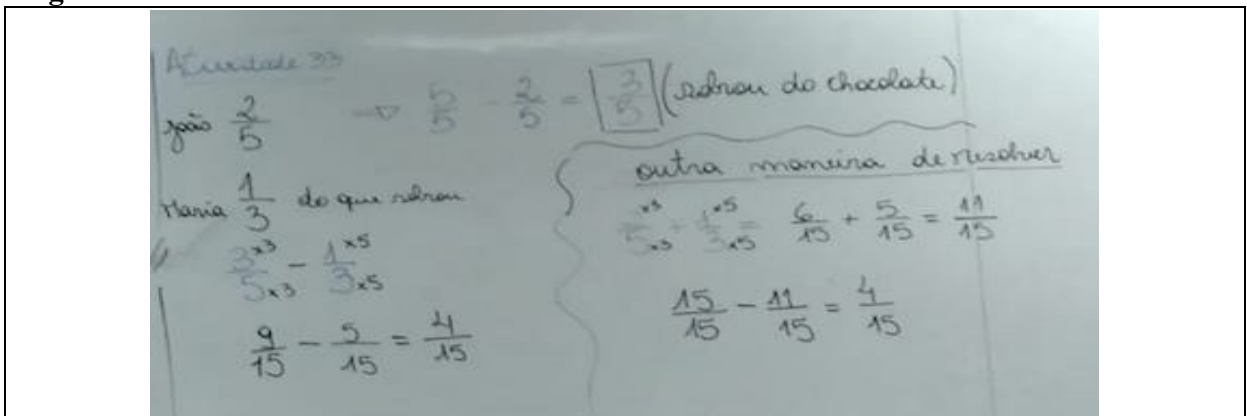 Atividade 33
João 2/5 → 5/5 - 2/5 = 3/5 (sobrou do chocolate)
Maria 1/3 do que sobrou
3x3/5x3 - 1x5/3x5
9/15 - 5/15 = 4/15
outra maneira de resolver
x3/5x3 + 1x5/3x5 = 6/15 + 5/15 = 11/15
15/15 - 11/15 = 4/15